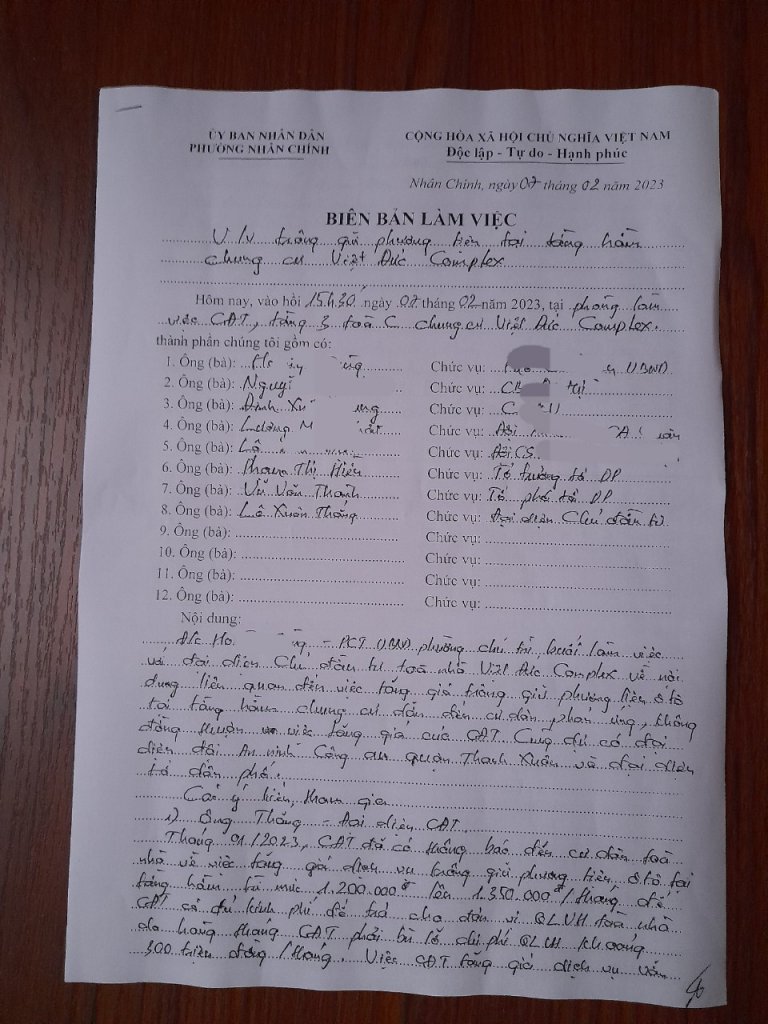 ỦY BAN NHÂN DÂN
PHƯỜNG NHÂN CHÍNH
CỘNG HÒA XÃ HỘI CHỦ NGHĨA VIỆT NAM
Độc lập - Tự do - Hạnh phúc
Nhân Chính, ngày 07 tháng 02 năm 2023
BIÊN BẢN LÀM VIỆC
V/v trông giữ phương tiện tại tầng hầm
chung cư Việt Đức Complex
Hôm nay, vào hồi 15h30, ngày 07 tháng 02 năm 2023, tại phòng làm
việc CĐT, tầng 3 toà C chung cư Việt Đức Complex.
thành phần chúng tôi gồm có:
1. Ông (bà): Chức vụ: UBND
2. Ông (bà): Chức vụ:
3. Ông (bà): Đinh Chức vụ:
4. Ông (bà): Chức vụ:
5. Ông (bà): Chức vụ:
6. Ông (bà): Phạm Thị Hiền Chức vụ: Tổ trưởng tổ DP
7. Ông (bà): Vũ Văn Thanh Chức vụ: Tổ phó tổ DP
8. Ông (bà): Lê Xuân Thắng Chức vụ: Đại diện Chủ đầu tư
9. Ông (bà): Chức vụ:
10. Ông (bà): Chức vụ:
11. Ông (bà): Chức vụ:
12. Ông (bà): Chức vụ:
Nội dung:
Đ/c - PCT UBND phường chủ trì buổi làm việc
với đại diện Chủ đầu tư toà nhà Việt Đức Complex về nội
dung liên quan đến việc tăng giá trông giữ phương tiện ô tô
tại tầng hầm chung cư dẫn đến cư dân phản ứng, không
đồng thuận việc tăng giá của CĐT. Cùng dự có đại
diện đội An ninh Công an quận Thanh Xuân và đại diện
tổ dân phố.
Các ý kiến tham gia
1) Ông Thắng - Đại diện CĐT.
Tháng 01/2023, CĐT đã có thông báo đến cư dân toà
nhà về việc tăng giá dịch vụ trông giữ phương tiện ô tô tại
tầng hầm từ mức 1.200.000đ lên 1.350.000đ/tháng để
CĐT có đủ kinh phí để trả cho đơn vị QLVH toà nhà
do hàng tháng CĐT phải bù lỗ chi phí QLVH khoảng
300 triệu đồng/tháng. Việc CĐT tăng giá dịch vụ vẫn